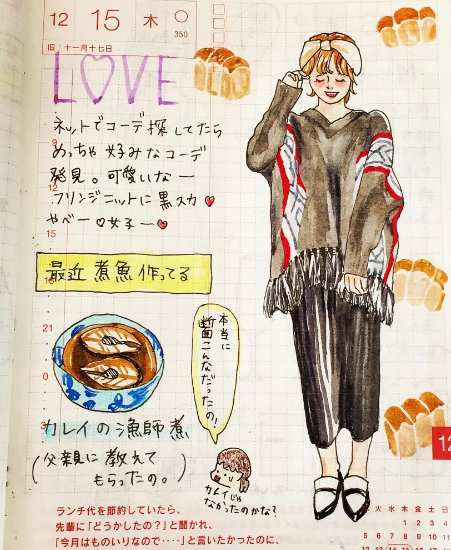 12 15 木 ○
350
旧:十一月十七日
LOVE
ネットでコーデ探してたら
めっちゃ好みなコーデ
発見。可愛いなー
フリンジニットに黒スカ
やべー♡女子ー
9
12
15
18
21
0
3
最近煮魚作ってる
本当に
断面こんなだったの!
カレイの漁師煮
(父親に教えて
もらったの。)
カレイじゃ
なかったのかな?
ランチ代を節約していたら、
先輩に「どうかしたの?」と聞かれ、
「今月はものいりなので‥‥」と言いたかったのに、
12
月 火 水 木 金 土 日
1 2 3 4
5 6 7 8 9 10 11
12 13 14 15 16 17 18